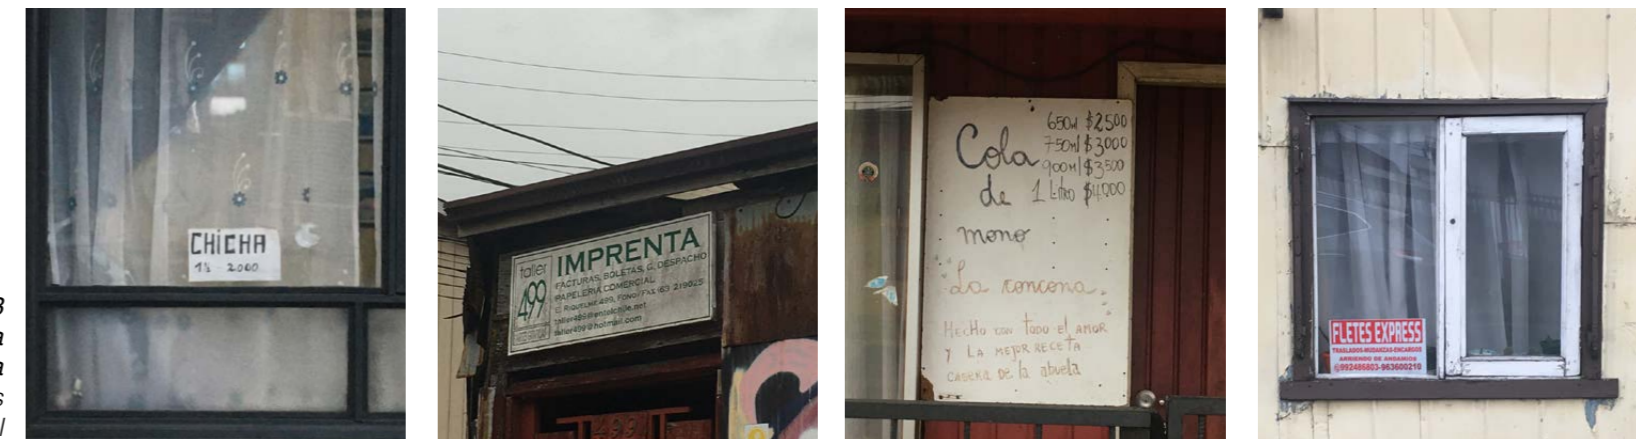 3
a
a
s
l
CHICHA
1½ - 2000
taller
499
IMPRENTA
FACTURAS, BOLETAS, G. DESPACHO
PAPELERIA COMERCIAL
E. RIQUELME 499, FONO/FAX (63) 219025
taller499@entelchile.net
taller499@hotmail.com
499
Cola
de
mono
650ml $2500
750ml $3000
900ml $3500
1 Litro $4000
La concona
HECHO CON TODO EL AMOR
Y LA MEJOR RECETA
CASERA DE la abuela
FLETES EXPRESS
TRASLADOS-MUDANZAS-ENCARGOS
ARRIENDO DE ANDAMIOS
992486803-963600210